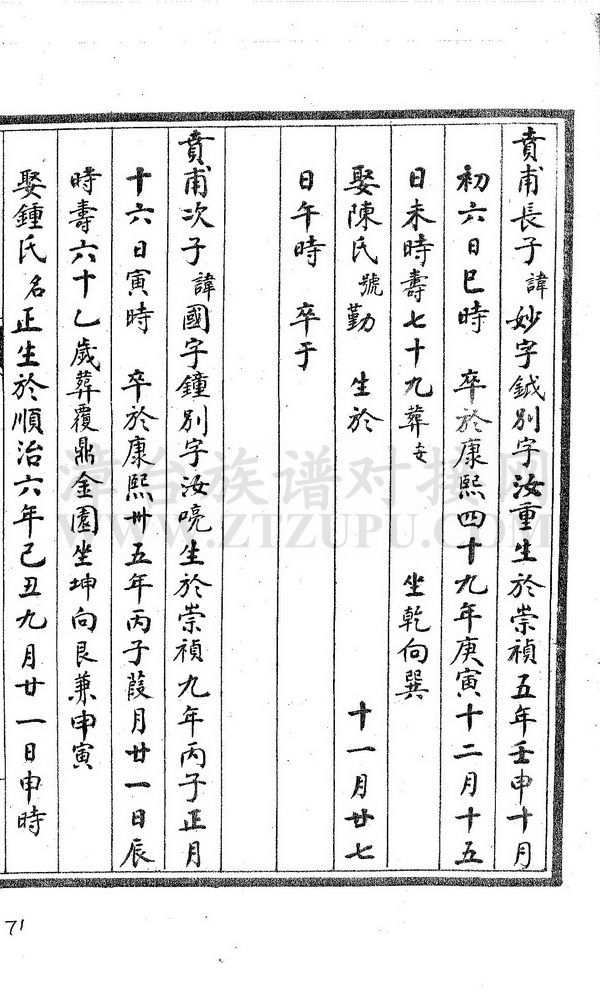 賁甫長子諱妙字鉞別字汝重生於崇禎五年壬申十月
初六日巳時 卒於康熙四十九年庚寅十二月十五
日未時壽七十九葬 坐乾向巽
娶陳氏號勤 生於 十一月廿七
日午時 卒于
賁甫次子諱國字鐘別字汝喨生於崇禎九年丙子正月
十六日寅時 卒於康熙卅五年丙子葭月廿一日辰
時壽六十乙歲葬覆鼎金園坐坤向艮兼申寅
娶鍾氏名正生於順治六年己丑九月廿一日申時
漳台族谱对接网
WWW.ZTZUPU.COM
71